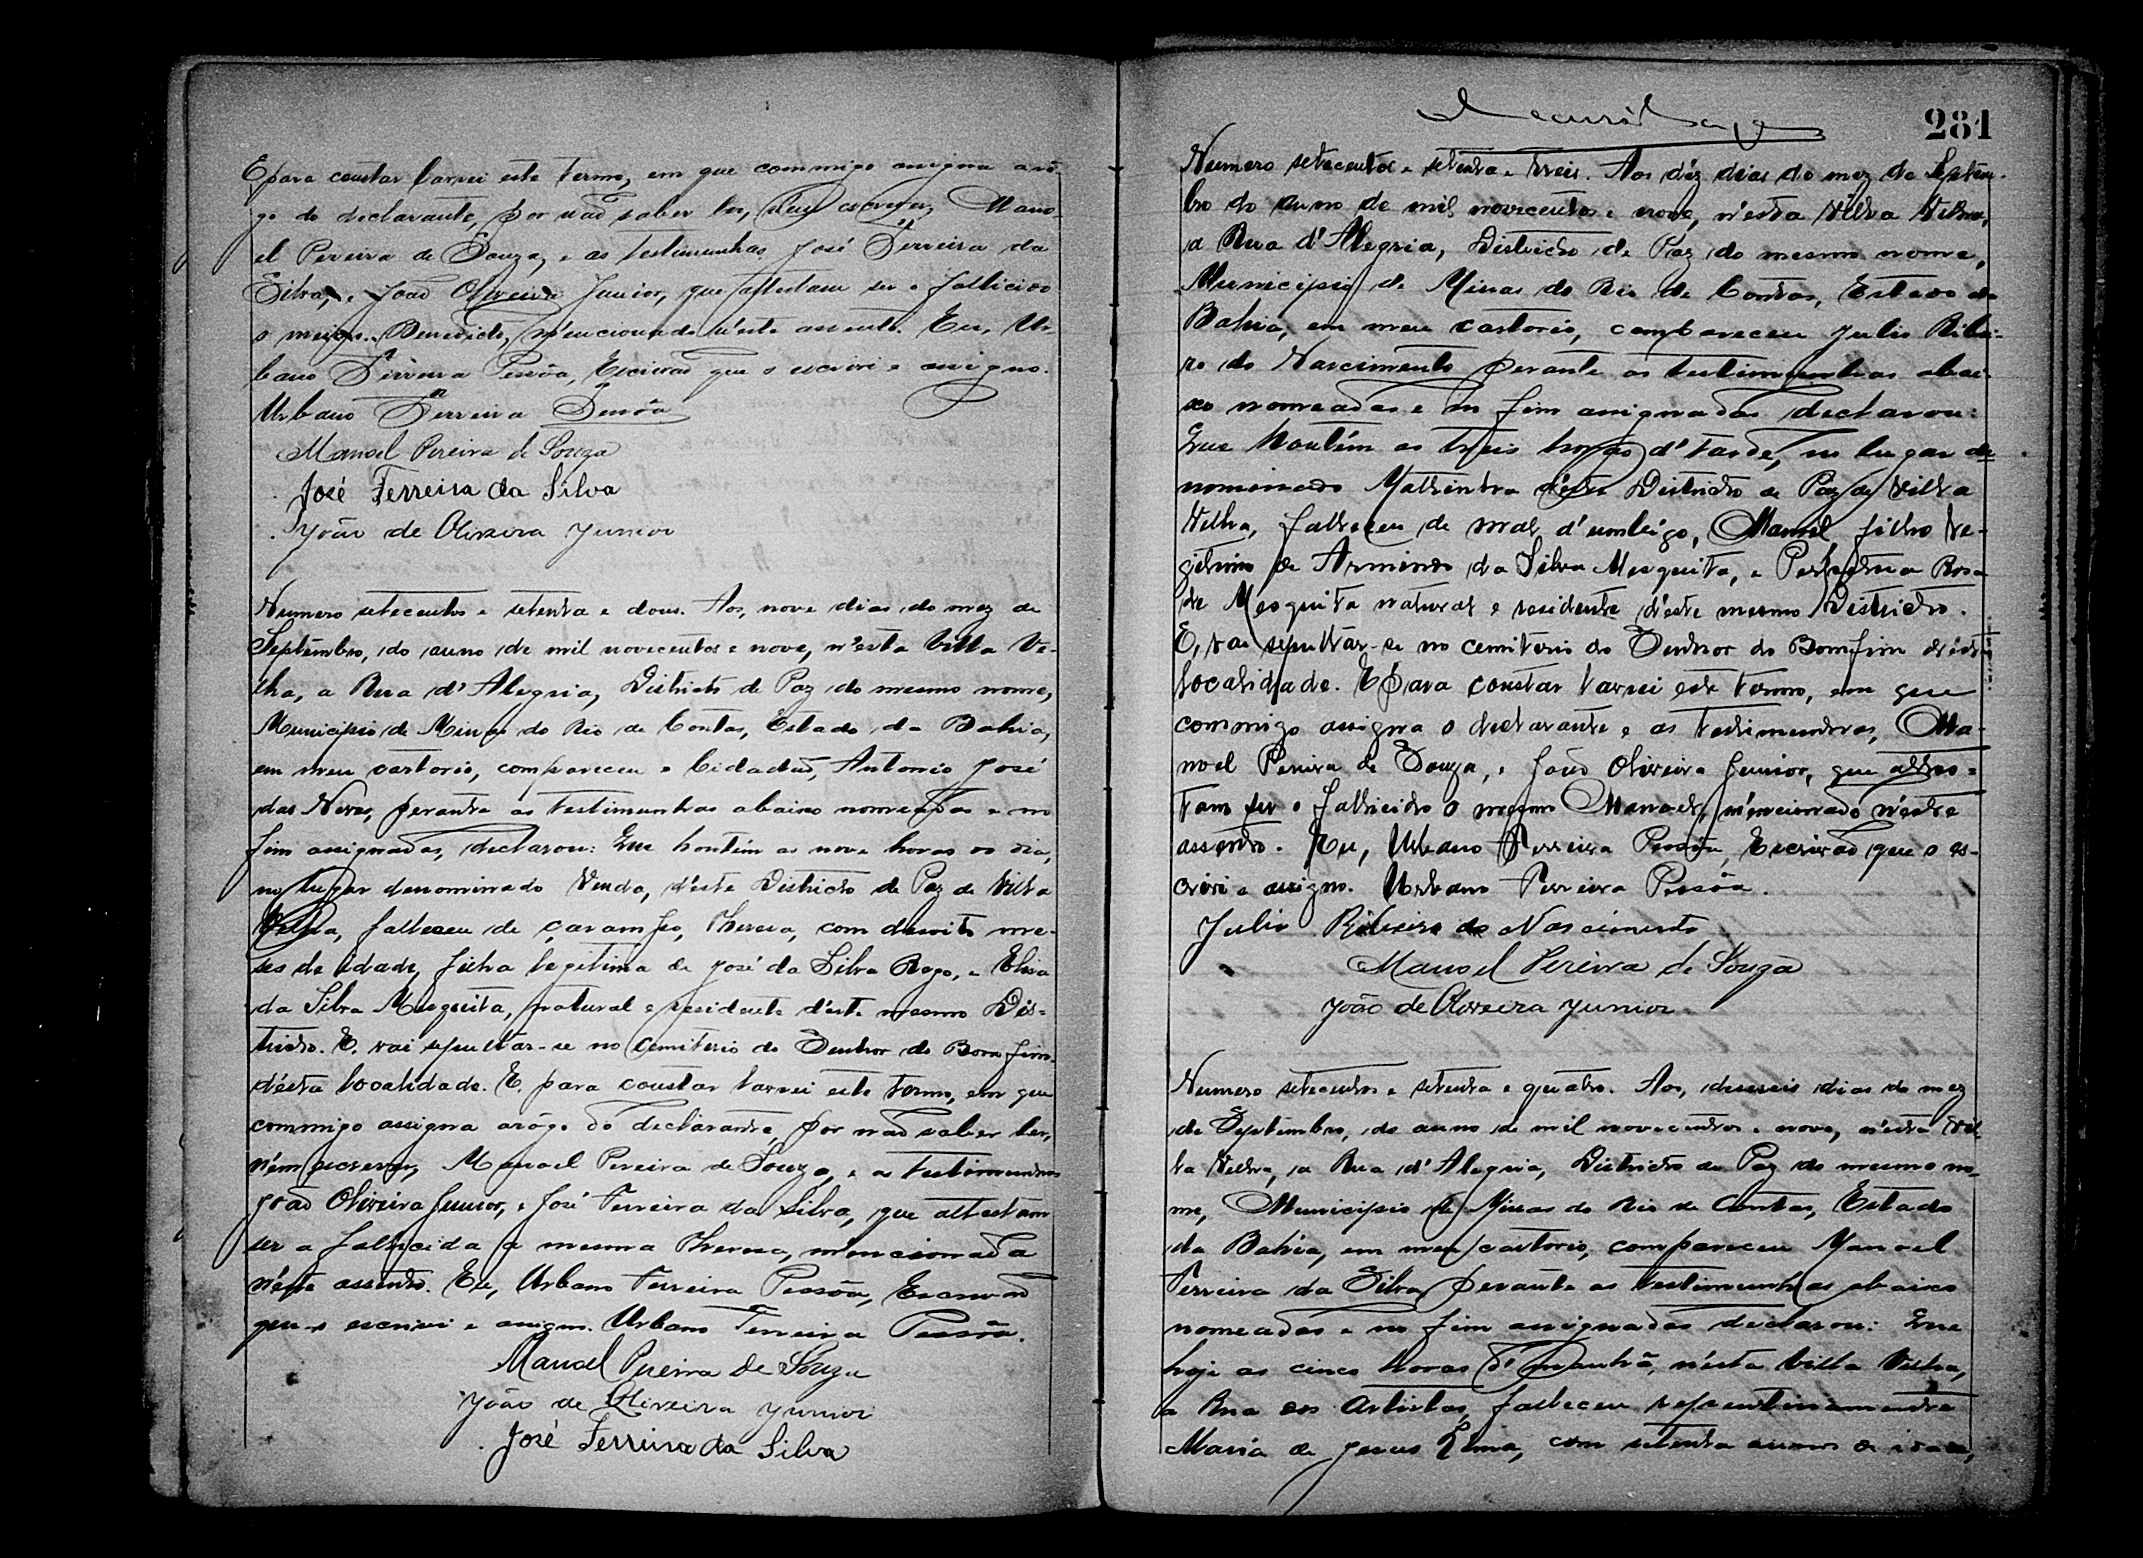 E para constar lavrei este termo, em que commigo assigna a rô-
go do declarante, por não saber ler, nem escrever, Mano-
el Pereira de Souza, e as testimunhas José Ferreira da
Silva, e João Oliveira Junior, que attestam ser o fallicido
o mesmo Benedicto, mencionado n'este assento. Eu, Ur
bano Ferreira Pessôa, Escrivão que o escrivi e assigno.
Urbano Ferreira Pessôa
Manoel Pereira de Souza
José Ferreira da Silva
João de Oliveira Junior
Numero setecentos e setenta e dous. Aos, nove dias do mez de
Septembro, do anno de mil novecentos e nove, n'esta Villa Ve-
lha, a Rua d'Alegria, Districto de Paz do mesmo nome,
Municipio de Minas do Rio de Contas, Estado da Bahia,
em meu cartorio, compareceu o Cidadão, Antonio José
das Neves, perante as testimunhas abaixo nomeadas e no
fim assignadas, declarou: Que hontem as nove horas do dia,
no lugar denominado Venda, d'este Districto de Paz de Villa
Velha, falleceu de çarampo, Thereza, com desoito me-
ses de idade, filha legitima de José da Silva Rego, e Elisa
da Silva Mesquita, natural e residente d'este mesmo Dis-
tricto. E, vai sepultar-se no Cemiterio do Senhor do Bom fim
désta localidade. E, para constar lavrei este termo, em que
commigo assigna arôgo do declarante, por não saber ler,
n'em escrever, Manoel Pereira de Souza, e as testimunhas
João Oliveira Junior, e José Ferreira da Silva, que attestam
ser a fallicida a mesma Thereza, mencionada
n'este assento. Eu, Urbano Ferreira Pessôa, Escrivão
que o escrivi e assigno. Urbano Ferreira Pessôa.
Manoel Pereira de Souza
João de Oliveira Junior
José Ferreira da Silva
281
Numero setecentos e setenta e treis. Aos déz dias do mez de Septem-
bro do anno de mil novecentos e nove, n'esta Villa Velha,
a Rua d'Alegria, Districto de Paz do mesmo nome,
Municipio de Minas do Rio de Contas, Estado da
Bahia, em meu cartorio, compareceu Julio Ribei-
ro do Nascimento perante as testimunhas abai-
xo nomeadas e no fim assignadas declarou:
Que hontém as treis horas d'tarde, no lugar de
nominado d'este Districto de Paz de Villa
Velha, falleceu de mal d'umbigo, Manoel, filho le-
gitimo de Armindo da Silva Mesquita, e Rosa
de Mesquita natural e residente d'este mesmo Districto.
E, vae sepultar-se no cemiterio do Senhor do Bomfim désta
localidade. E para constar lavrei este termo, em que
commigo assigna o declarante e as testimunhas, Ma-
noel Pereira de Souza, e João Oliveira Junior, que attes-
tam ser o fallicido o mesmo Manoel, mencionado n'este
assento. Eu, Urbano Ferreira Pessôa, Escrivão que o es-
crivi e assigno. Urbano Ferreira Pessôa.
Julio Ribeiro do Nascimento
Manoel Pereira de Souza
João de Oliveira Junior
Numero setecentos e setenta e quatro. Aos, deseseis dias do mez
de Septembro, do anno de mil novecentos e nove, n'esta Vil
la Velha, a Rua d'Alegria, Districto de Paz do mesmo no-
me, Municipio de Minas do Rio de Contas, Estado
da Bahia, em meu cartorio, compareceu Manoel
Ferreira da Silva, perante as testimunhas abaixo
nomeadas e no fim assignadas declarou: Que
hoje as cinco horas d'manhã, n'esta Villa Velha,
a Rua dos Artistas, falleceu repentinamente
Maria de Jesus Lima, com setenta annos de idade,